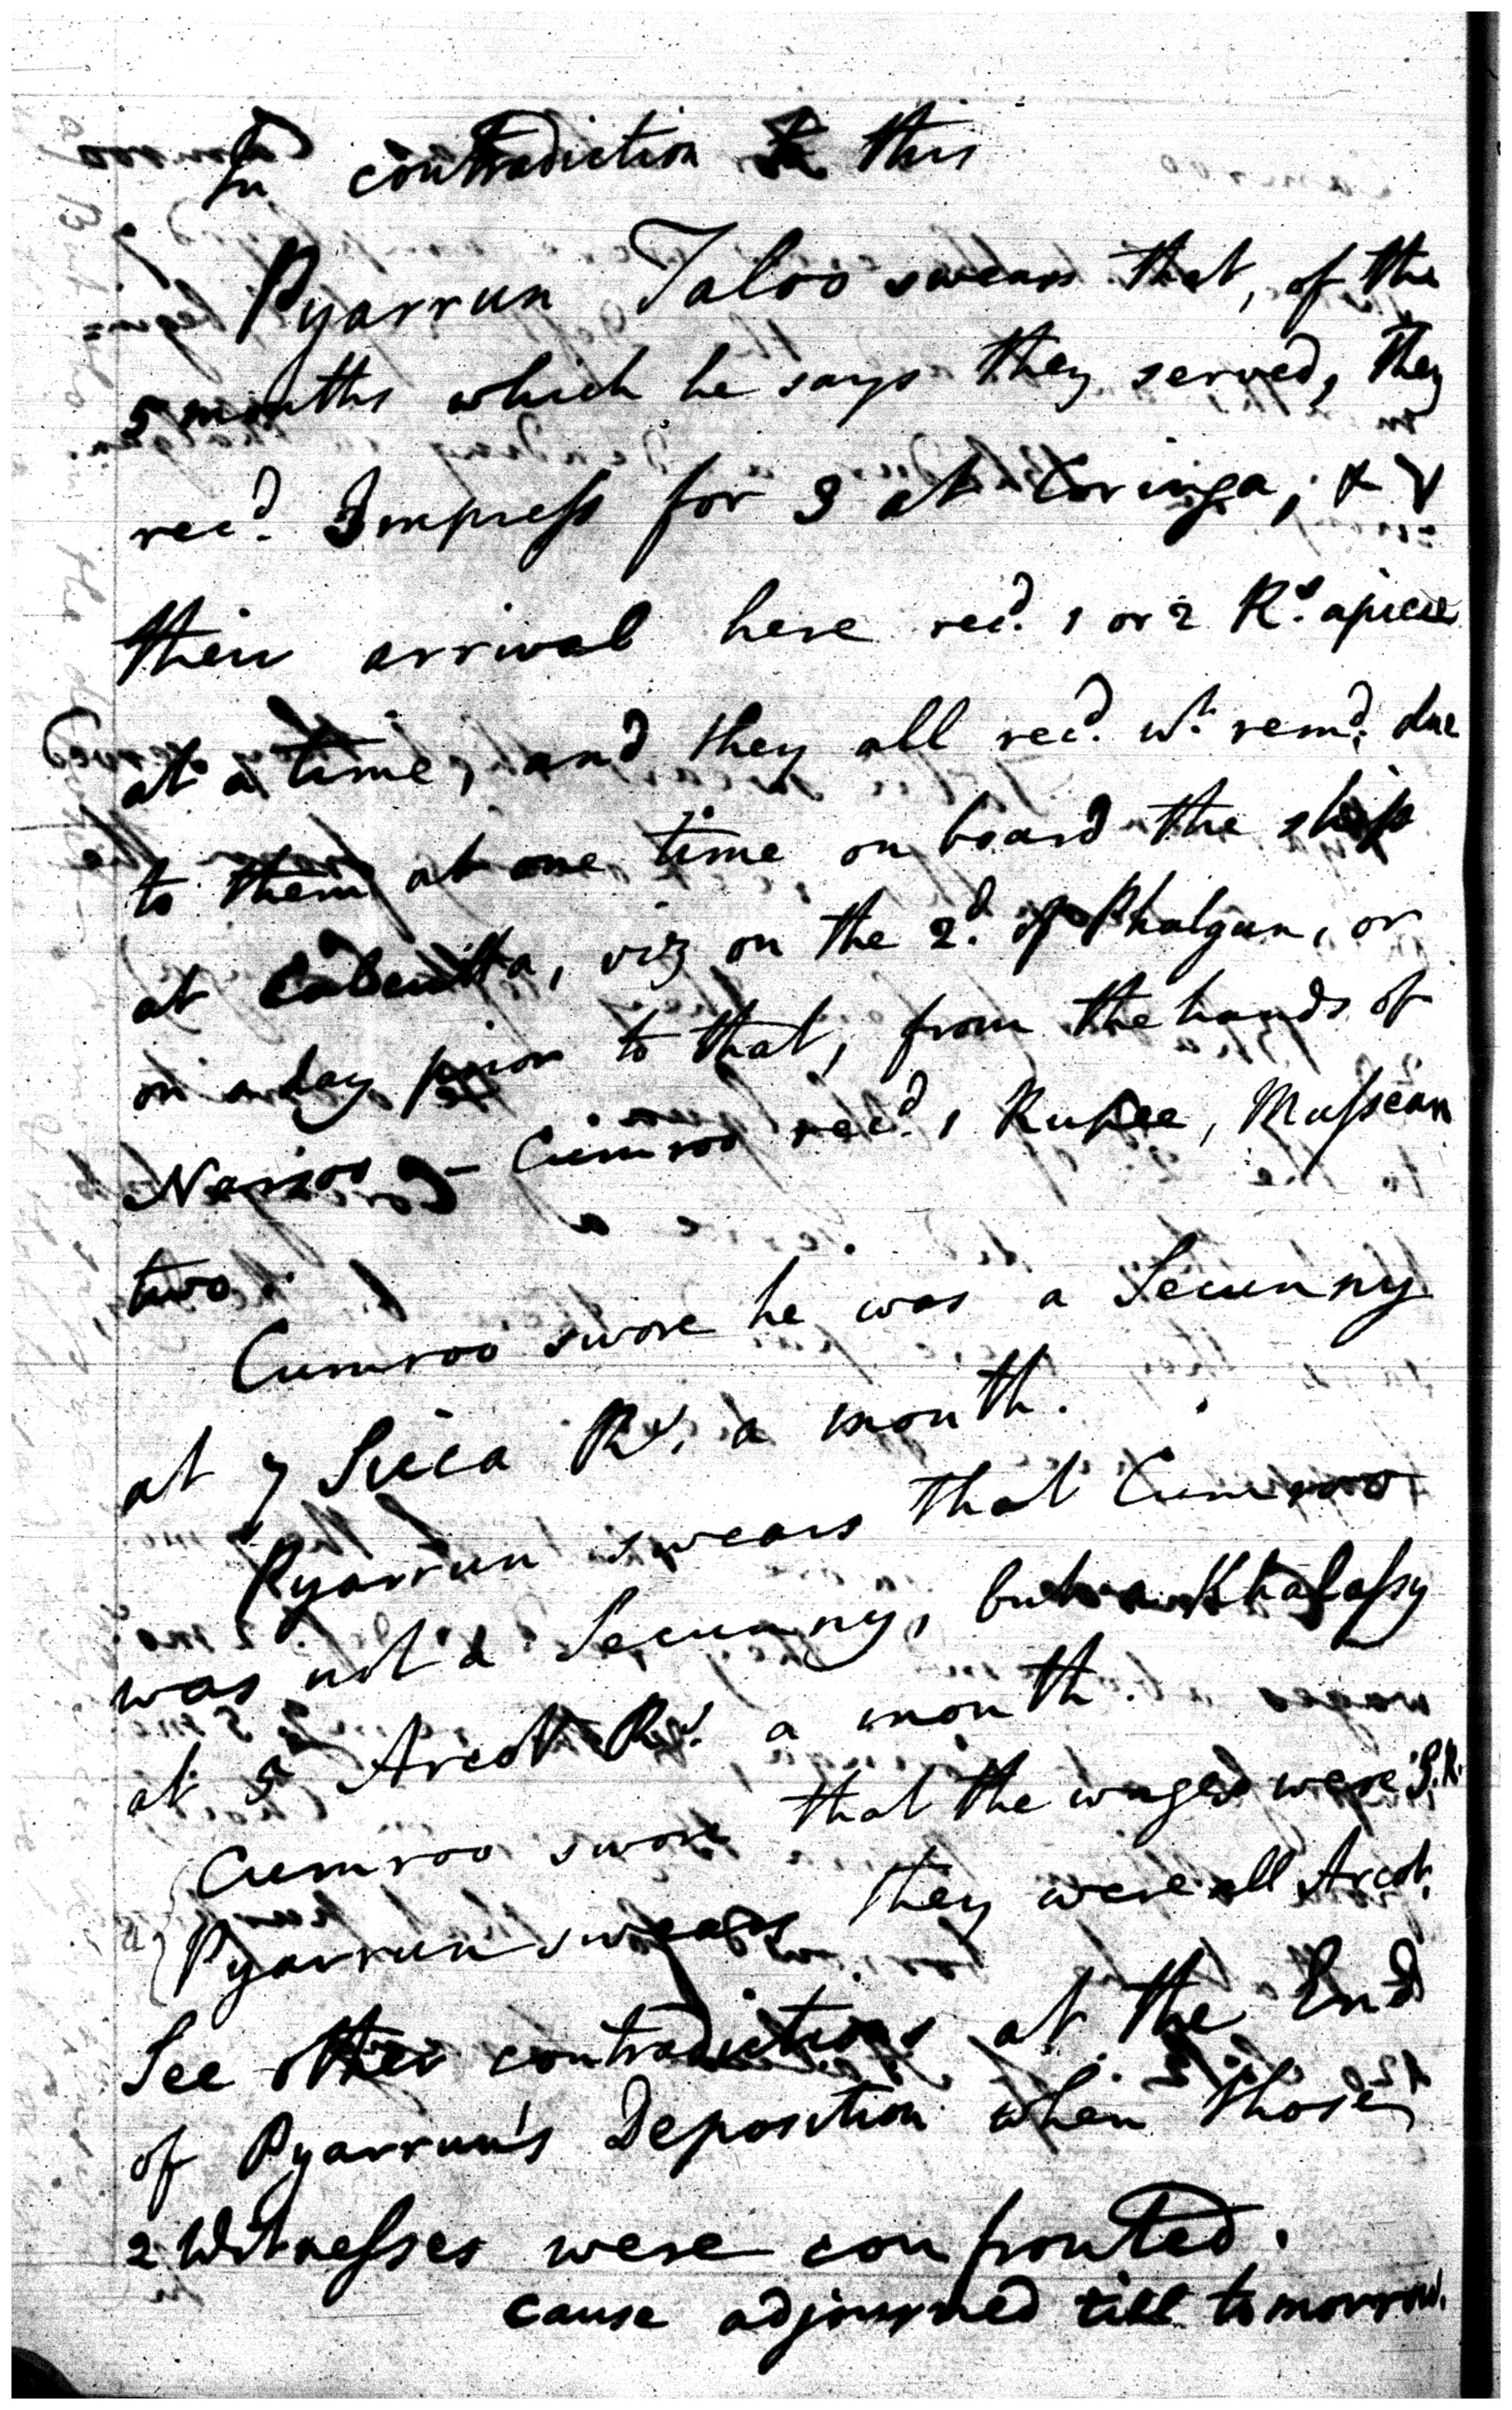 In contradiction to this
Pyarrun Taloo swears that, of the
5 months which he says they served, they
rec.d Impress for 3 at Coringa; &
their arrival here rec.d 1 or 2 R.s apiece
at a time, and they all rec.d w.t rem.d due
to them at one time on board the ship
at Calcutta, viz on the 2.d of Phalgun, or
on a day prior to that, from the hands of
Narsoo – Cumroo rec.d 1 Rupee, Mussean
two.
Cumroo swore he was a Secunny
at 7 Sicca R.s a month.
Pyarrun swears that Cumroo
was not a Secunny, but a Khalassy
at 5 Arcot R.s a month.
Cumroo swore that the wages were S.R.
Pyarrun swears they were all Arcot.
See other contradictions at the End
of Pyarrun's Deposition when those
2 Witnesses were confronted.
cause adjourned till tomorrow.